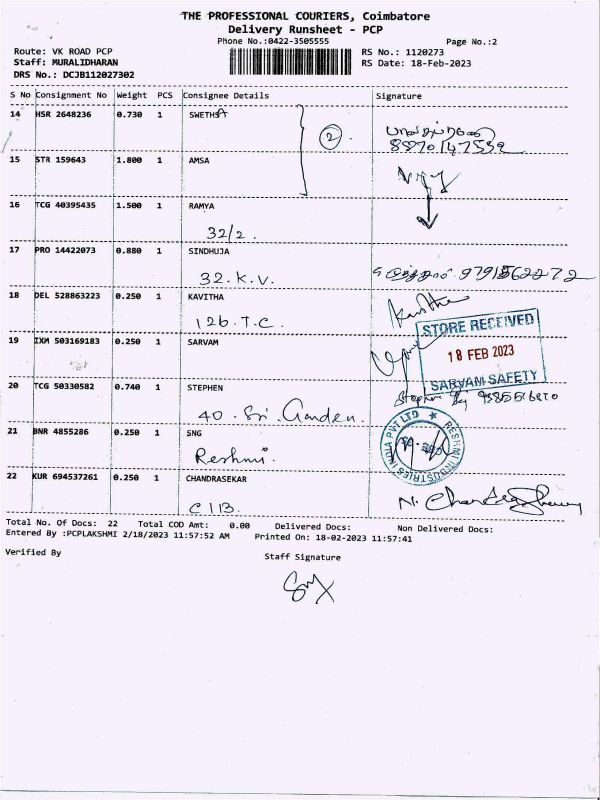 THE PROFESSIONAL COURIERS, Coimbatore
Delivery Runsheet - PCP
Phone No.:0422-3505555
Page No.:2
Route: VK ROAD PCP
RS No.: 1120273
Staff: MURALIDHARAN
RS Date: 18-Feb-2023
DRS No.: DCJB112027302
S No Consignment No Weight PCS Consignee Details Signature
14 HSR 2648236 0.730 1 SWETHA
2
15 STR 159643 1.800 1 AMSA
16 TCG 40395435 1.500 1 RAMYA
32/2.
17 PRO 14422073 0.880 1 SINDHUJA
32.K.V.
18 DEL 528863223 0.250 1 KAVITHA
Kavitha
126.T.C.
STORE RECEIVED
19 IXM 503169183 0.250 1 SARVAM
18 FEB 2023
SARVAM SAFETY
20 TCG 50330582 0.740 1 STEPHEN
Stephen
40. Sri Garden.
21 BNR 4855286 0.250 1 SNG
Reshmi.
RESHMI INDUSTRIES INDIA PVT LTD
22 KUR 694537261 0.250 1 CHANDRASEKAR
C113.
N. Chandrasekar
Total No. Of Docs: 22 Total COD Amt: 0.00 Delivered Docs: Non Delivered Docs:
Entered By :PCPLAKSHMI 2/18/2023 11:57:52 AM Printed On: 18-02-2023 11:57:41
Verified By
Staff Signature